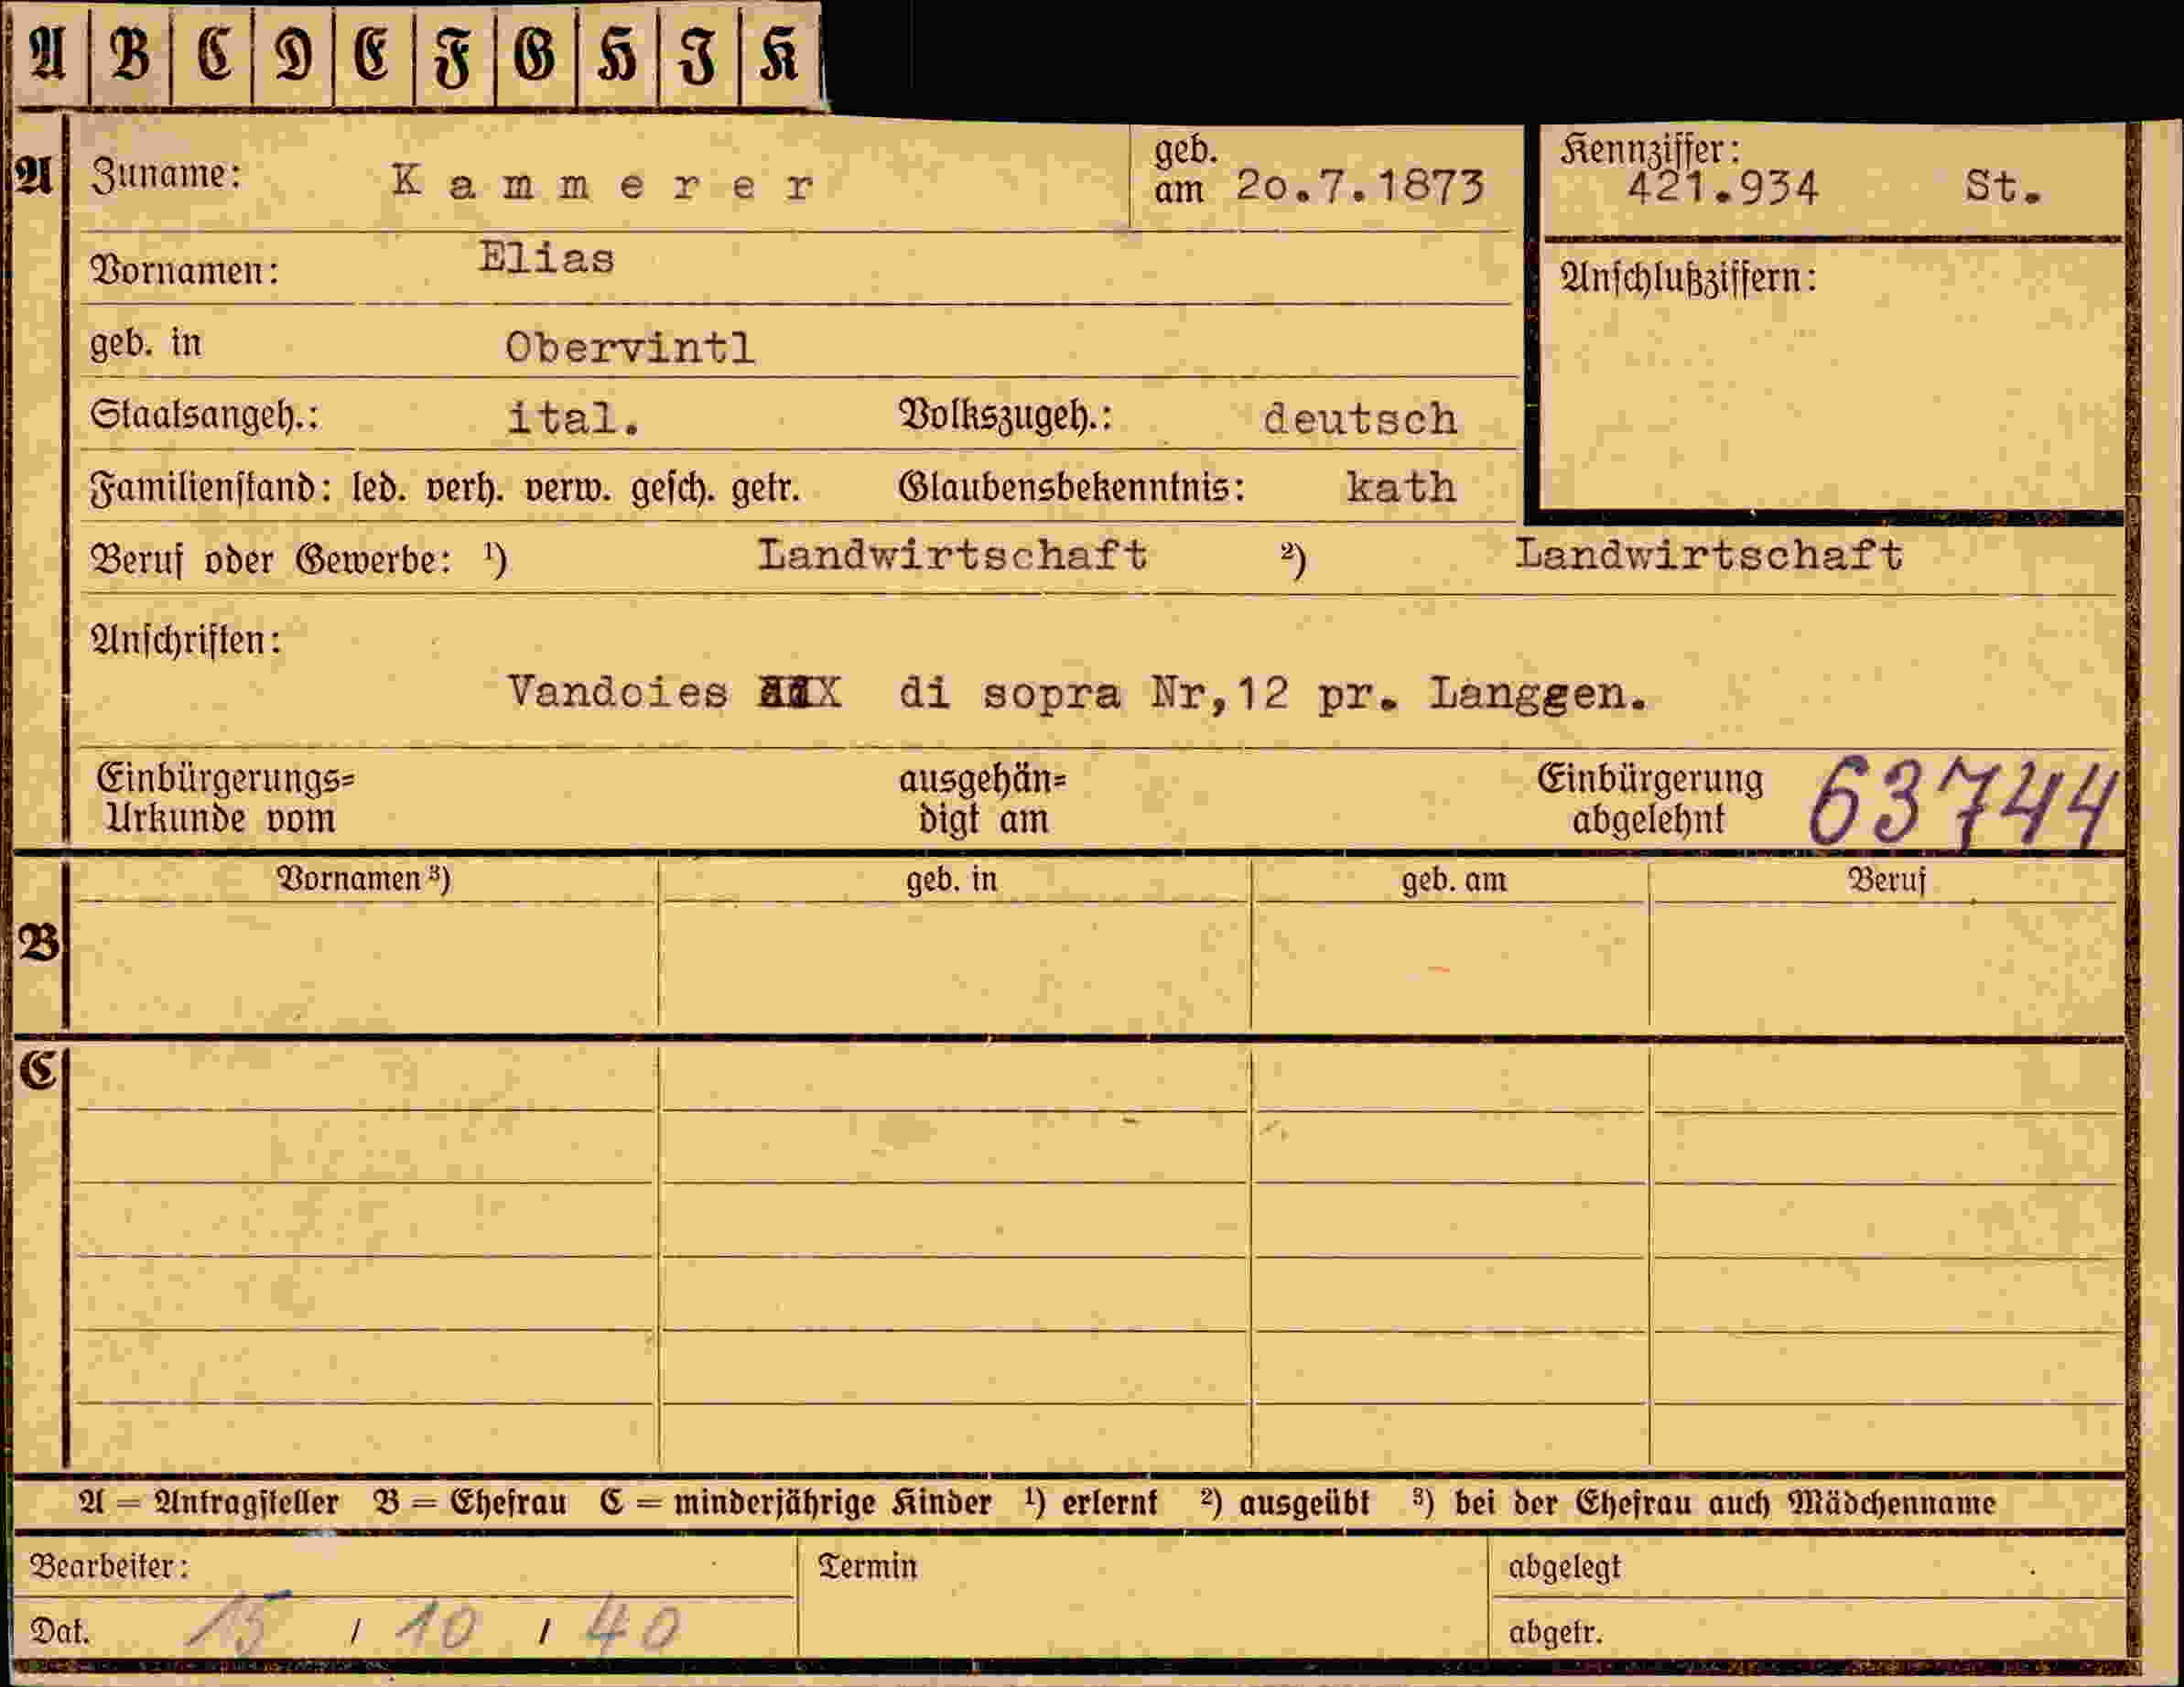 A B C D E F G H I K
A Zuname: Kammerer geb. am 20.7.1873 Kennziffer: 421.934 St.
Vornamen: Elias Anschlußziffern:
geb. in Obervintl
Staatsangeh.: ital. Volkszugeh.: deutsch
Familienstand: led. verh. verw. gesch. getr. Glaubensbekenntnis: kath
Beruf oder Gewerbe: ¹) Landwirtschaft ²) Landwirtschaft
Anschriften:
Vandoies di sopra Nr,12 pr. Langgen.
Einbürgerungs= ausgehän= Einbürgerung 63744
Urkunde vom digt am abgelehnt
Vornamen ³) geb. in geb. am Beruf
B
C
A = Antragsteller B = Ehefrau C = minderjährige Kinder ¹) erlernt ²) ausgeübt ³) bei der Ehefrau auch Mädchenname
Bearbeiter: Termin abgelegt
Dat. 15 / 10 / 40 abgetr.